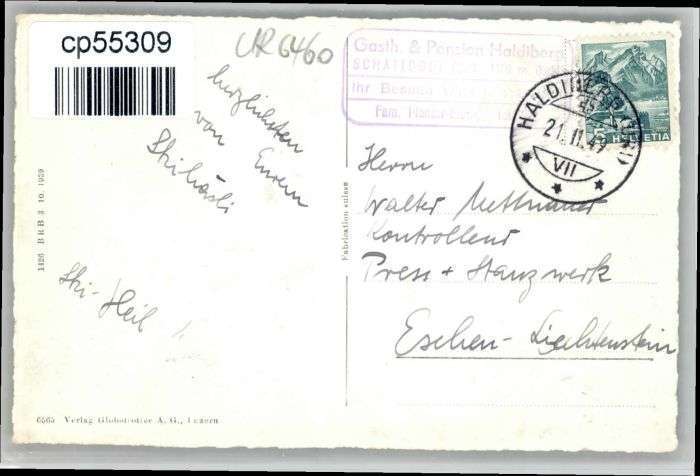 cp55309
UR 6460
Gasth. & Pension Haldiberg
SCHATTDORF
Ihr Besuch
Fam.
HALDIBERG (URI)
21.II.49
VII
5 HELVETIA
herzlichsten
von Euren
Skihäsli
Ski-Heil
Herrn
Walter
Kontrolleur
Press + Stanzwerk
Eschen-Liechtenstein
Fabrication suisse
1426 BRB 3. 10. 1939
6565 Verlag Globetrotter A. G., Luzern